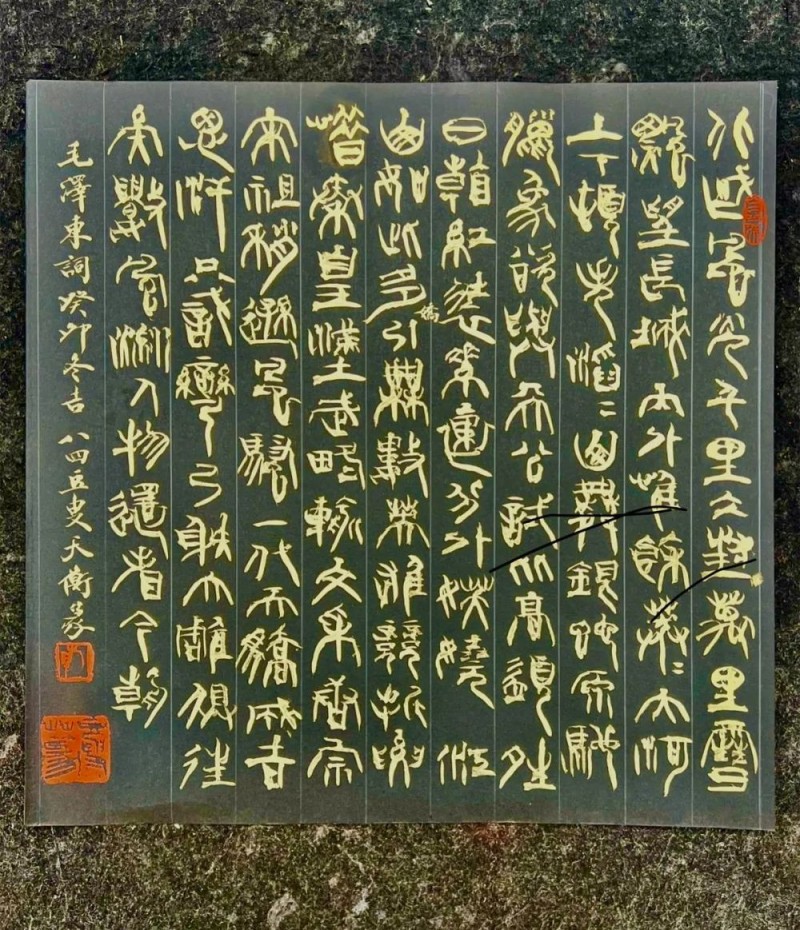 北國風光千里冰封萬里雪
飄望長城內外惟餘莽〻大河
上下頓失滔〻山舞銀蛇原馳
蠟象欲與天公試比高須晴
日看紅裝素裹分外妖嬈江
山如此多嬌引無數英雄競折腰
惜秦皇漢武略輸文采唐宗
宋祖稍遜風騷一代天驕成吉
思汗只識彎弓射大雕俱往
矣數風流人物還看今朝
毛澤東詞癸卯冬吉八四豆叟天衡篆